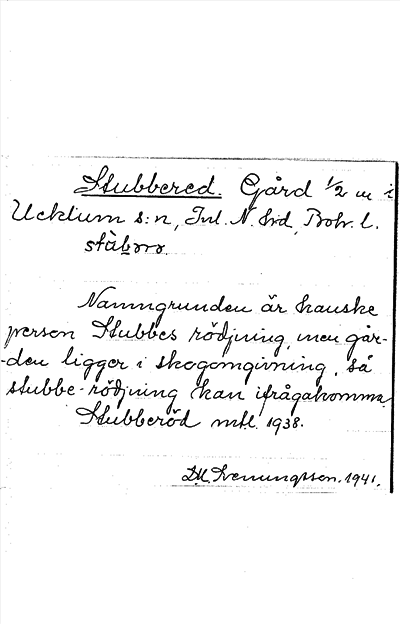 Stubbered. Gård 1/2 m i
Ucklum s:n, Inl. N. hrd, Boh. l.
Namngrunden är kanske
person Stubbes rödjning, men går-
-den ligger i skogomgivning, så
stubbe-rödjning kan ifrågakomma.
Stubberöd mtl. 1938.
Sveningsson. 1941.